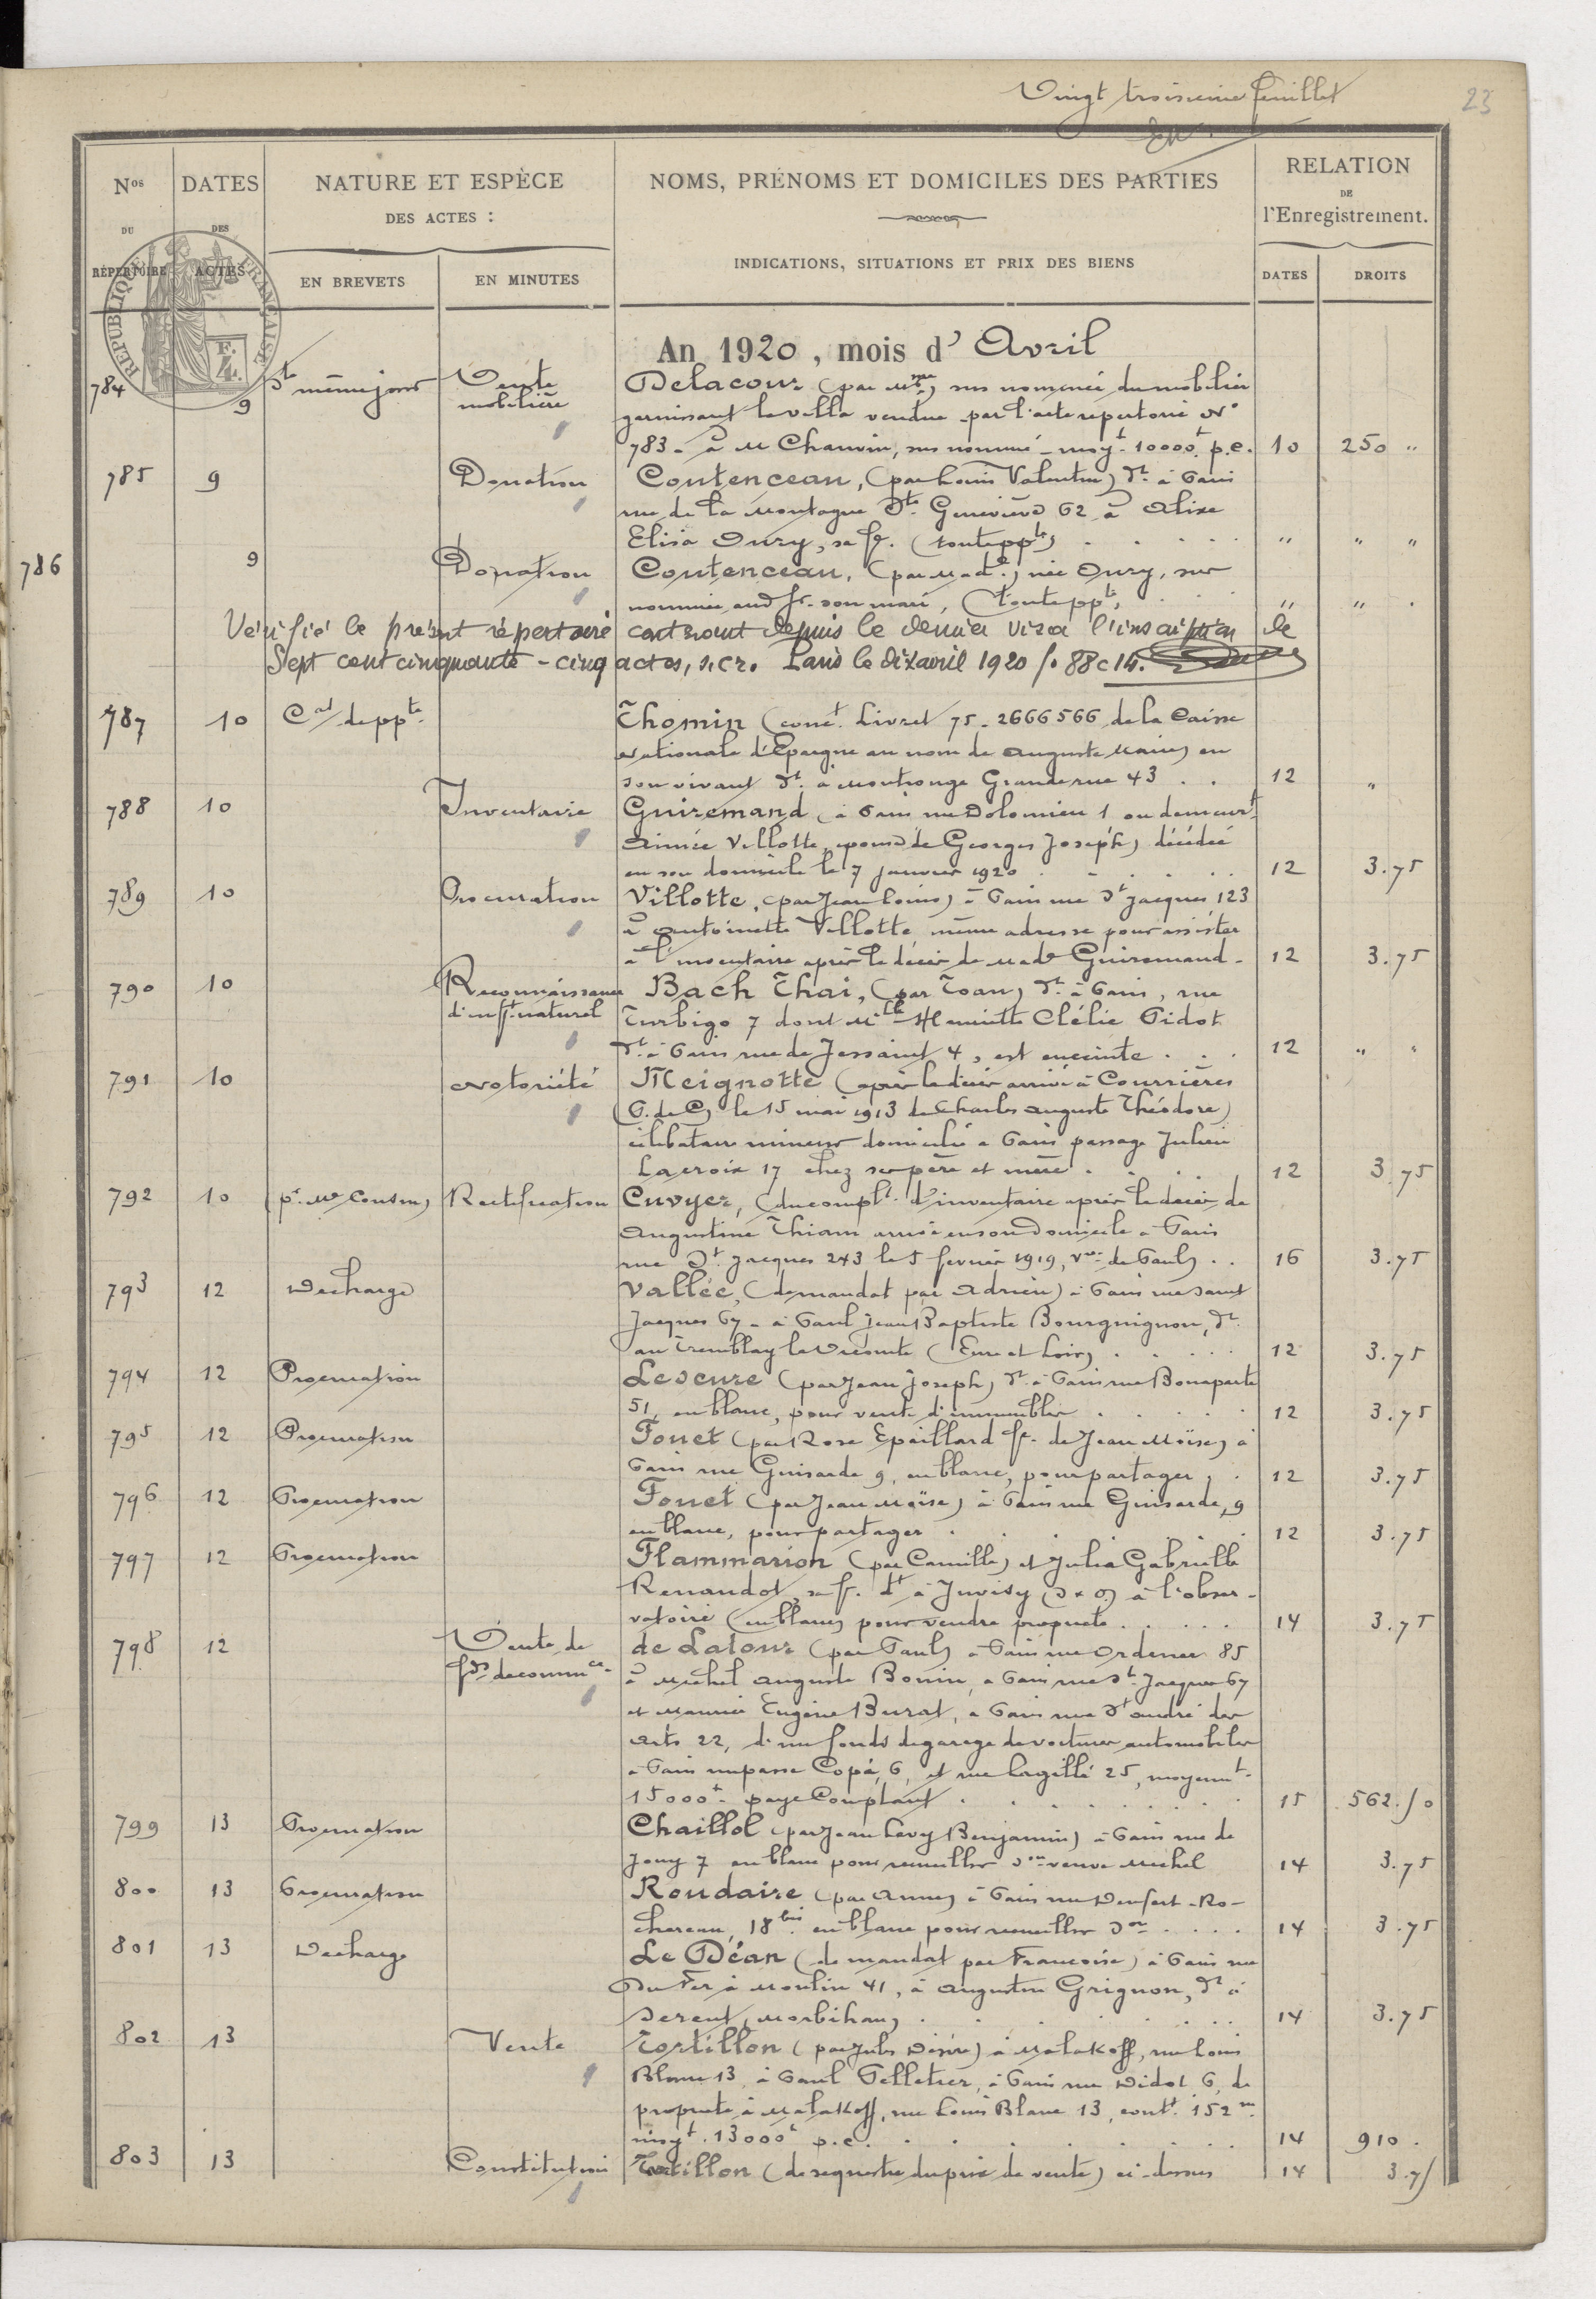 Vingt troisième feuillet
23
Nos DU RÉPERTOIRE
DATES DES ACTES
NATURE ET ESPÈCE DES ACTES :
EN BREVETS
EN MINUTES
NOMS, PRÉNOMS ET DOMICILES DES PARTIES
INDICATIONS, SITUATIONS ET PRIX DES BIENS
RELATION DE l'Enregistrement.
DATES
DROITS
RÉPUBLIQUE FRANÇAISE
An 1920, mois d' Avril
784 9 dt même jour Vente mobilière Delacour (par Mme) sus nommée du mobilier
garnissant la villa vendue par l'acte repertorié No
783 - à M Chauvin, sus nommé - moyt 10000f p.c. 10 250 "
785 9 Donation Coutenceau, (par Louis Valentin) dt à Paris
rue de la Montagne Ste Geneviève 62 à Alixe
Elisa Oury, sa fe. (toute ppté) . . . . " " "
786 9 Donation Coutenceau, (par Made) née Oury, sus
nommée aud fr. son mari, (toute ppté) . . " " .
Vérifié le présent répertoire contenant depuis le dernier visa l'inscription de
Sept cent cinquante-cinq actes, s.c.r. Paris le dix avril 1920 fo 88 c 14.
787 10 Cat de ppté Thomin (concnt Livret 75-2666566 de la Caisse
Nationale d'Epargne au nom de Auguste Marie) en
son vivant dt à Montrouge Grande rue 43 . . 12 "
788 10 Inventaire Guiremand (à Paris rue Dolomieu 1 ou demeurt
Aimée Villotte, épouse de Georges Joseph) décédée
en son domicile le 7 janvier 1920 . . . 12 3.75
789 10 Procuration Villotte, (par Jean Louis) à Paris rue St Jacques 123
à Antoinette Villotte même adresse pour assister
à l'inventaire après le décès de Made Guiremand - 12 3.75
790 10 Reconnaissance d'enft naturel Bach Thai, (par Toan) dt à Paris, rue
Turbigo 7 dont Mlle Henriette Clélie Pidot
dt à Paris rue de Jessaint 4, est enceinte . . . 12 " "
791 10 Notoriété Meignotte (après le décès arrivé à Courrières
(P. de C) le 15 mai 1913 de Charles Auguste Théodore)
célibataire mineur domicilié à Paris passage Julien
Lacroix 17 chez ses père et mère . . . 12 3.75
792 10 (pr. Me Cousin) Rectification Cuvyer, (du complt d'inventaire après le décès de
Augustine Thiam arrivé en son domicile à Paris
rue St Jacques 243 le 5 février 1919, vve de Paul) . . 16 3.75
793 12 Décharge Vallée, (de mandat par Adrien) à Paris rue Saint
Jacques 67 - à Paul Jean Baptiste Bourguignon, dt
au Tremblay le Vicomte (Eure et Loir) . . . . 12 3.75
794 12 Procuration Lescure (par Jean Joseph) dt à Paris rue Bonaparte
51, en blanc, pour vente d'immeubles . . . . 12 3.75
795 12 Procuration Fouet (par Rose Epaillard fe. de Jean Moïse) à
Paris rue Guisarde 9, en blanc, pour partager . . 12 3.75
796 12 Procuration Fouet (par Jean Moïse) à Paris rue Guisarde, 9
en blanc, pour partager . . . . 12 3.75
797 12 Procuration Flammarion (par Camille) et Julia Gabrielle
Renaudot, sa fe. dt à Juvisy (S & O) à l'obser-
vatoire (en blanc) pour vendre propriété . . . . . 14 3.75
798 12 Vente de fds de commce de Latour (par Paul) à Paris rue Ordener 85
à Michel Auguste Bonin, à Paris rue St Jacques 67
et Maurice Eugène Burat, à Paris rue St André des
Arts 22, d'un fonds de garage de voitures automobiles
à Paris impasse 6, et rue 25, moyennt
15000f payé Comptant . . . . . 15 562.50
799 13 Procuration Chaillol (par Jean Levy Benjamin) à Paris rue de
Jouy 7 en blanc pour recueillir son veuve Michel 14 3.75
800 13 Procuration Roudaire (par Anne) à Paris rue Denfert-Ro-
chereau, 18 bis en blanc pour recueillir son . . . . 14 3.75
801 13 Décharge Le Déan (de mandat par Françoise) à Paris rue
Du Fer à Moulin 41, à Augustin Grignon, dt à
Serent (Morbihan) . . . . . 14 3.75
802 13 Vente Tortillon (par Jules Désiré) à Malakoff, rue Louis
Blanc 13, à Paul Pelletier, à Paris rue Didot 6, de
propriété à Malakoff, rue Louis Blanc 13, contt 152 m
moyt 13000f p.c. . . . . 14 910 .
803 13 Constitution Tortillon (de sequestre du prix de vente) ci-dessus 14 3.75